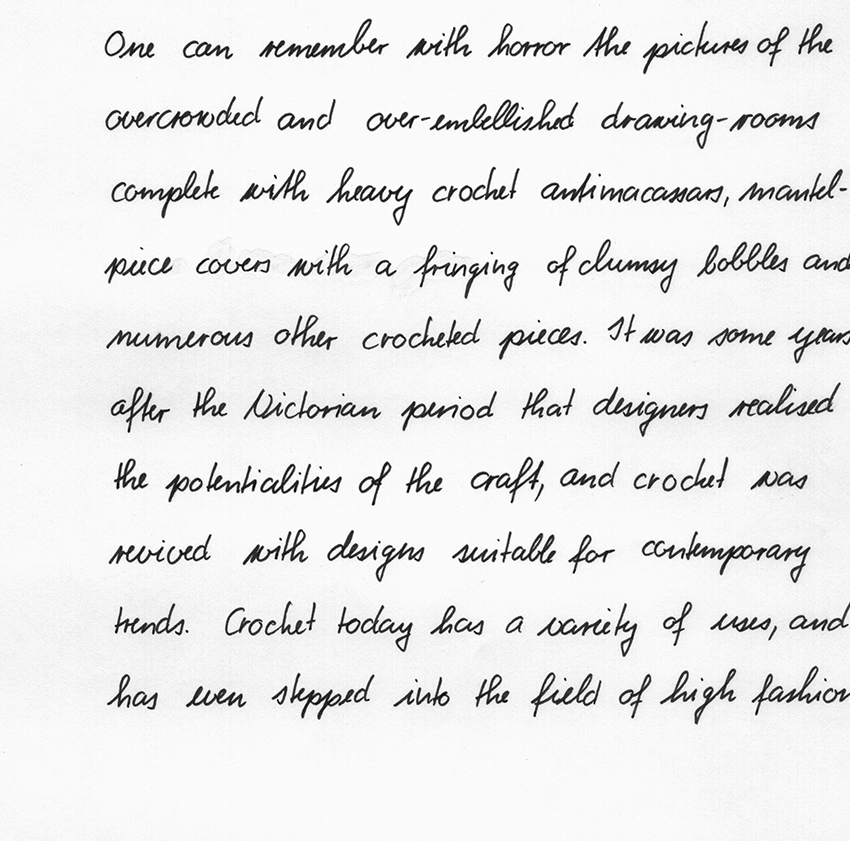 One can remember with horror the pictures of the
overcrowded and over-embellished drawing-rooms
complete with heavy crochet antimacassars, mantel-
piece covers with a fringing of clumsy bobbles and
numerous other crocheted pieces. It was some years
after the Victorian period that designers realised
the potentialities of the craft, and crochet was
revived with designs suitable for contemporary
trends. Crochet today has a variety of uses, and
has even stepped into the field of high fashion